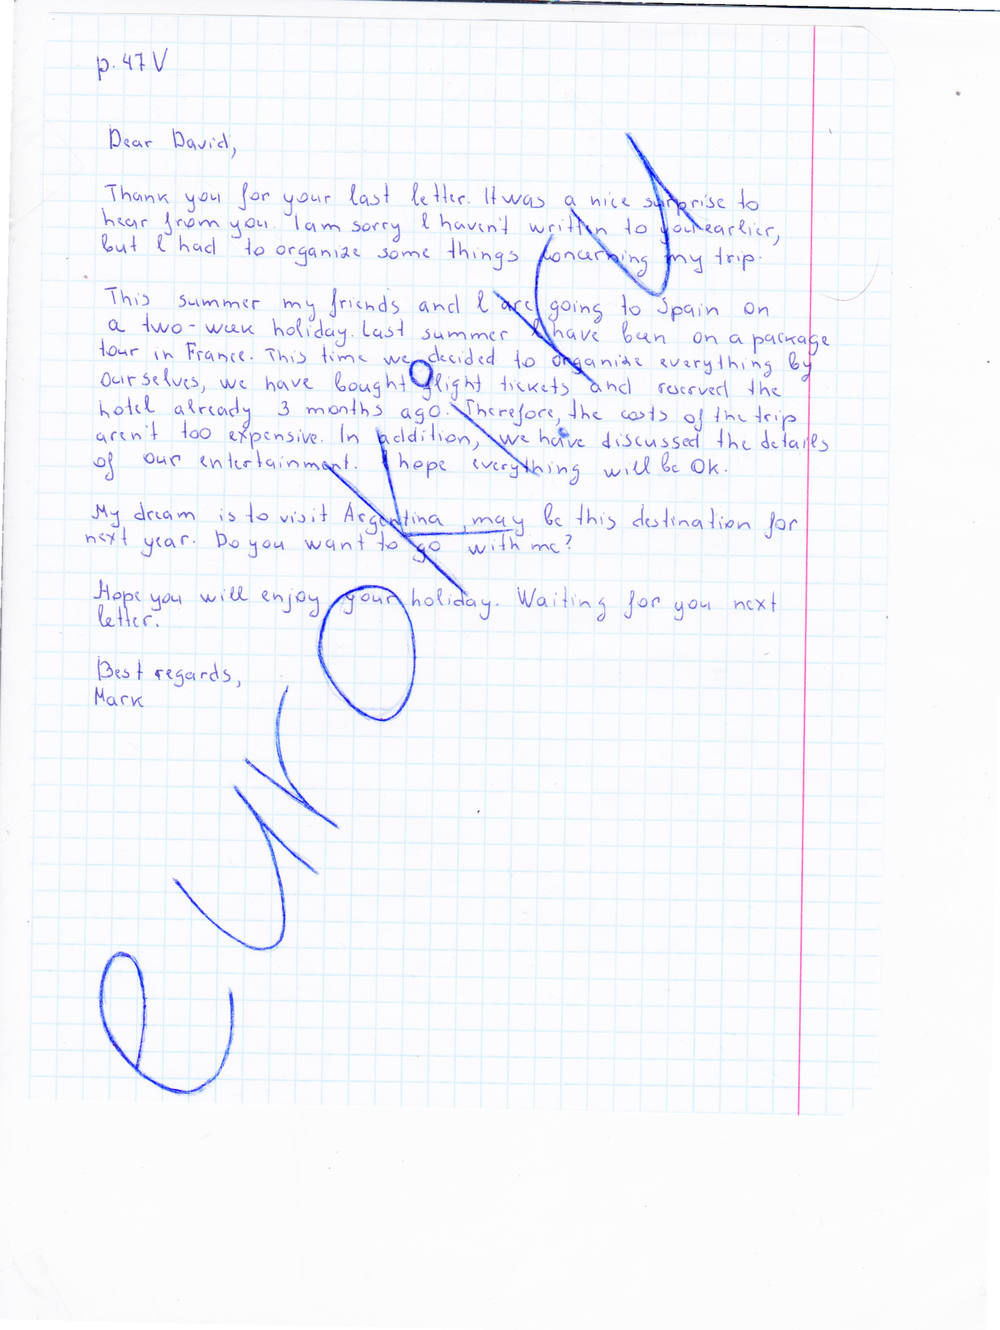 p. 47 V
Dear David,
Thank you for your last letter. It was a nice surprise to
hear from you. I am sorry I haven't written to you earlier,
but I had to organize some things concerning my trip.
This summer my friends and I are going to Spain on
a two-week holiday. Last summer I have been on a package
tour in France. This time we decided to organize everything by
ourselves, we have bought flight tickets and reserved the
hotel already 3 months ago. Therefore, the costs of the trip
aren't too expensive. In addition, we have discussed the details
of our entertainment. I hope everything will be OK.
My dream is to visit Argentina, may be this destination for
next year. Do you want to go with me?
Hope you will enjoy your holiday. Waiting for you next
letter.
Best regards,
Mark